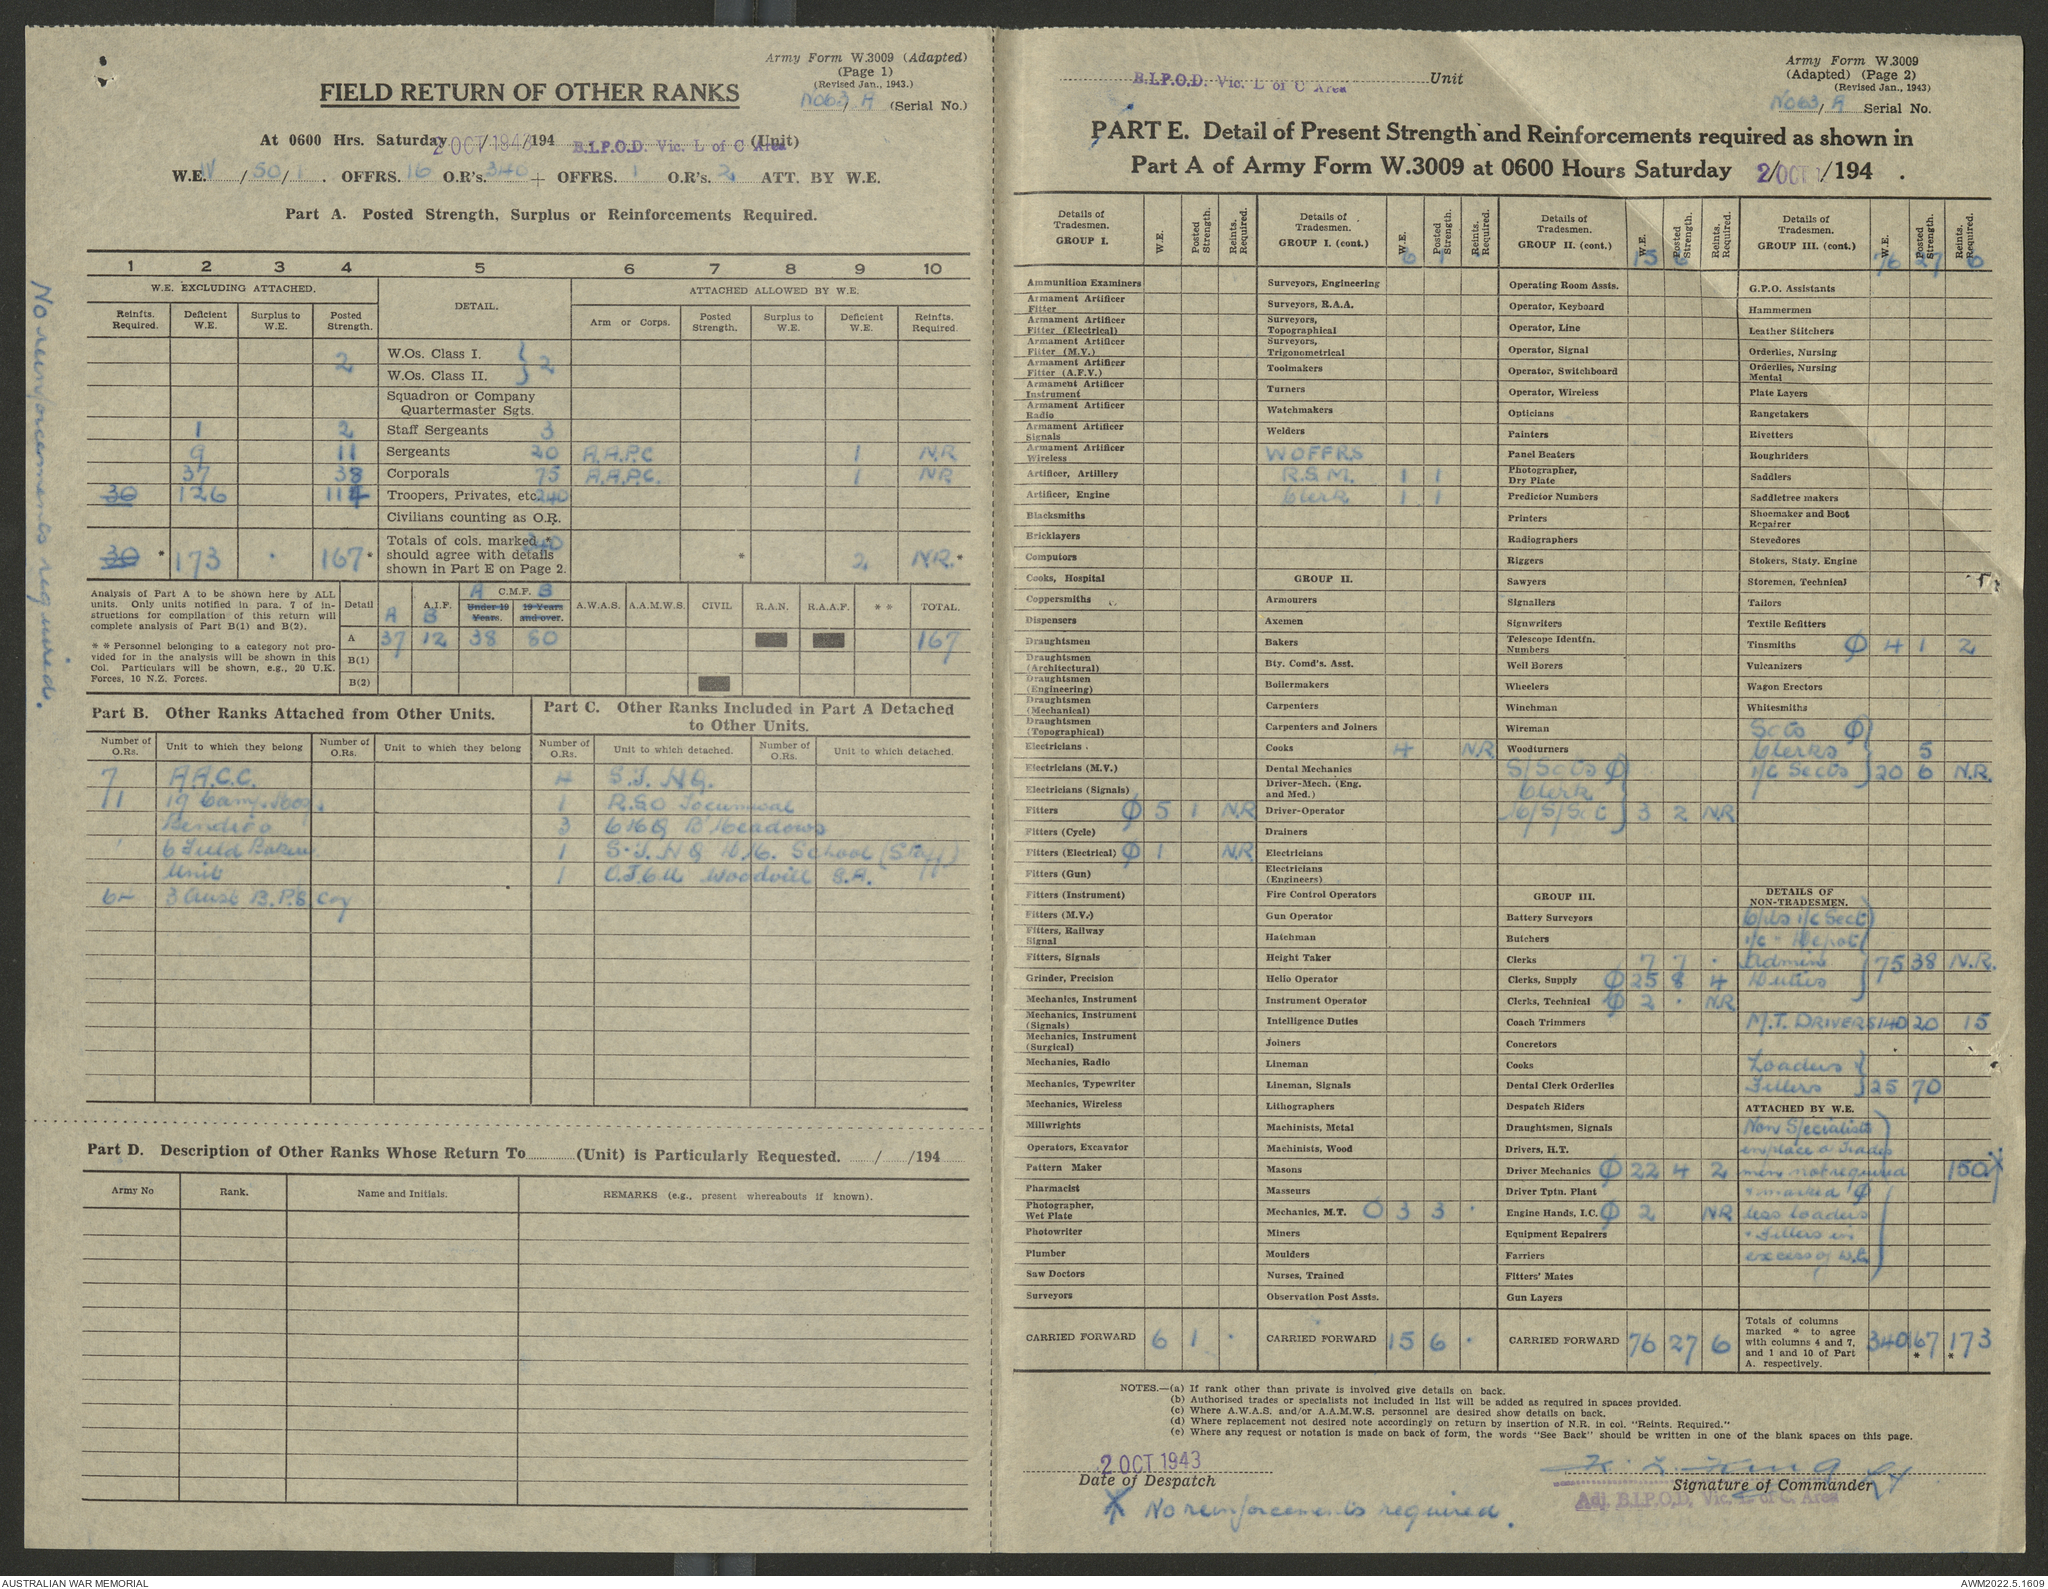 Army Form W.3009 (Adapted)
(Page 1)
(Revised Jan., 1943.)
No 63/A (Serial No.)
FIELD RETURN OF OTHER RANKS
At 0600 Hrs. Saturday 2 OCT 1943/194 B.I.P.O.D. Vic. L of C Area (Unit)
W.E. IV/50/1. OFFRS. 16 O.R's. 340 + OFFRS. 1 O.R's. 2 ATT. BY W.E.
Part A. Posted Strength, Surplus or Reinforcements Required.
1 2 3 4 5 6 7 8 9 10
W.E. EXCLUDING ATTACHED. DETAIL. ATTACHED ALLOWED BY W.E.
Reinfts. Required. Deficient W.E. Surplus to W.E. Posted Strength. Arm or Corps. Posted Strength. Surplus to W.E. Deficient W.E. Reinfts. Required.
W.Os. Class I.
2 } 2
W.Os. Class II.
Squadron or Company
Quartermaster Sgts.
1 2 Staff Sergeants 3
9 11 Sergeants 20 A.A.P.C 1 N.R
37 38 Corporals 75 A.A.P.C. 1 NR
30 126 114 Troopers, Privates, etc. 240
Civilians counting as O.R.
Totals of cols. marked * 340
30 * 173 . 167 * should agree with details * 2 N.R. *
shown in Part E on Page 2.
Analysis of Part A to be shown here by ALL
units. Only units notified in para. 7 of in-
structions for compilation of this return will
complete analysis of Part B(1) and B(2).
* * Personnel belonging to a category not pro-
vided for in the analysis will be shown in this
Col. Particulars will be shown, e.g., 20 U.K.
Forces, 10 N.Z. Forces.
Detail A A.I.F. B A C.M.F. B A.W.A.S. A.A.M.W.S. CIVIL R.A.N. R.A.A.F. * * TOTAL.
Under 19 Years. 19 Years and over.
A 37 12 38 80 167
B(1)
B(2)
No reinforcements required.
Part B. Other Ranks Attached from Other Units.
Number of O.Rs. Unit to which they belong Number of O.Rs. Unit to which they belong
7 A.A.C.C.
11 19 Camp Hosp.
Bendigo
1 6 Field Bakery
Unit
64 3 Aust B.P.S. Coy
Part C. Other Ranks Included in Part A Detached
to Other Units.
Number of O.Rs. Unit to which detached. Number of O.Rs. Unit to which detached.
4 S.T. HQ.
1 R.S.O Tocumwal
3 B'Meadows
1 S.T. HQ School (Staff)
1 Woodvill S.A.
Part D. Description of Other Ranks Whose Return To (Unit) is Particularly Requested. / /194
Army No Rank. Name and Initials. REMARKS (e.g., present whereabouts if known).
B.I.P.O.D. Vic. L of C Area Unit
Army Form W.3009
(Adapted) (Page 2)
(Revised Jan., 1943)
No 63/A Serial No.
PART E. Detail of Present Strength and Reinforcements required as shown in
Part A of Army Form W.3009 at 0600 Hours Saturday 2/OCT/194 .
Details of Tradesmen. GROUP I. W.E. Posted Strength. Reints. Required.
Ammunition Examiners
Armament Artificer Fitter
Armament Artificer Fitter (Electrical)
Armament Artificer Fitter (M.V.)
Armament Artificer Fitter (A.F.V.)
Armament Artificer Instrument
Armament Artificer Radio
Armament Artificer Signals
Armament Artificer Wireless
Artificer, Artillery
Artificer, Engine
Blacksmiths
Bricklayers
Computors
Cooks, Hospital
Coppersmiths
Dispensers
Draughtsmen
Draughtsmen (Architectural)
Draughtsmen (Engineering)
Draughtsmen (Mechanical)
Draughtsmen (Topographical)
Electricians
Electricians (M.V.)
Electricians (Signals)
Fitters Ø 5 1 N.R
Fitters (Cycle)
Fitters (Electrical) Ø 1 N.R
Fitters (Gun)
Fitters (Instrument)
Fitters (M.V.)
Fitters, Railway Signal
Fitters, Signals
Grinder, Precision
Mechanics, Instrument
Mechanics, Instrument (Signals)
Mechanics, Instrument (Surgical)
Mechanics, Radio
Mechanics, Typewriter
Mechanics, Wireless
Millwrights
Operators, Excavator
Pattern Maker
Pharmacist
Photographer, Wet Plate
Photowriter
Plumber
Saw Doctors
Surveyors
CARRIED FORWARD 6 1 .
Details of Tradesmen. GROUP I. (cont.) W.E. Posted Strength. Reints. Required.
6 1
Surveyors, Engineering
Surveyors, R.A.A.
Surveyors, Topographical
Surveyors, Trigonometrical
Toolmakers
Turners
Watchmakers
Welders
W OFFRS
R.S.M. 1 1
Clerk 1 1
GROUP II.
Armourers
Axemen
Bakers
Bty. Comd's. Asst.
Boilermakers
Carpenters
Carpenters and Joiners
Cooks 4 N.R
Dental Mechanics
Driver-Mech. (Eng. and Med.)
Driver-Operator
Drainers
Electricians
Electricians (Engineers)
Fire Control Operators
Gun Operator
Hatchman
Height Taker
Helio Operator
Instrument Operator
Intelligence Duties
Joiners
Lineman
Lineman, Signals
Lithographers
Machinists, Metal
Machinists, Wood
Masons
Masseurs
Mechanics, M.T. O 3 3 .
Miners
Moulders
Nurses, Trained
Observation Post Assts.
CARRIED FORWARD 15 6 .
Details of Tradesmen. GROUP II. (cont.) W.E. Posted Strength. Reints. Required.
15 6
Operating Room Assts.
Operator, Keyboard
Operator, Line
Operator, Signal
Operator, Switchboard
Operator, Wireless
Opticians
Painters
Panel Beaters
Photographer, Dry Plate
Predictor Numbers
Printers
Radiographers
Riggers
Sawyers
Signallers
Signwriters
Telescope Identfn. Numbers
Well Borers
Wheelers
Winchman
Wireman
Woodturners
S/Scts Ø
Clerk
3 2 NR
GROUP III.
Battery Surveyors
Butchers
Clerks 7 7 .
Clerks, Supply Ø 25 8 4
Clerks, Technical Ø 2 . N.R
Coach Trimmers
Concretors
Cooks
Dental Clerk Orderlies
Despatch Riders
Draughtsmen, Signals
Drivers, H.T.
Driver Mechanics Ø 22 4 2
Driver Tptn. Plant
Engine Hands, I.C. Ø 2 NR
Equipment Repairers
Farriers
Fitters' Mates
Gun Layers
CARRIED FORWARD 76 27 6
Details of Tradesmen. GROUP III. (cont.) W.E. Posted Strength. Reints. Required.
76 27 6
G.P.O. Assistants
Hammermen
Leather Stitchers
Orderlies, Nursing
Orderlies, Nursing Mental
Plate Layers
Rangetakers
Rivetters
Roughriders
Saddlers
Saddletree makers
Shoemaker and Boot Repairer
Stevedores
Stokers, Staty. Engine
Storemen, Technical
Tailors
Textile Refitters
Tinsmiths Ø 4 1 2
Vulcanizers
Wagon Erectors
Whitesmiths
Scts Ø
Clerks 5
i/c Sects 20 6 N.R.
DETAILS OF NON-TRADESMEN.
Cpls i/c Sect
i/c - Depot
Admin 75 38 N.R.
Duties
M.T. DRIVERS 140 20 15
Loaders
Fillers 25 70
ATTACHED BY W.E.
Non Specialists
in place of Trades
men not required 150
+ marked Ø
less Loaders
+ Fillers in
excess of W.E.
Totals of columns
marked * to agree
with columns 4 and 7,
and 1 and 10 of Part
A. respectively.
340 167 * 173 *
NOTES.—(a) If rank other than private is involved give details on back.
(b) Authorised trades or specialists not included in list will be added as required in spaces provided.
(c) Where A.W.A.S. and/or A.A.M.W.S. personnel are desired show details on back.
(d) Where replacement not desired note accordingly on return by insertion of N.R. in col. "Reints. Required."
(e) Where any request or notation is made on back of form, the words "See Back" should be written in one of the blank spaces on this page.
2 OCT 1943
Date of Despatch
Signature of Commander
Adj. B.I.P.O.D. Vic. L of C. Area
No reinforcements required.
AUSTRALIAN WAR MEMORIAL
AWM2022.5.1609